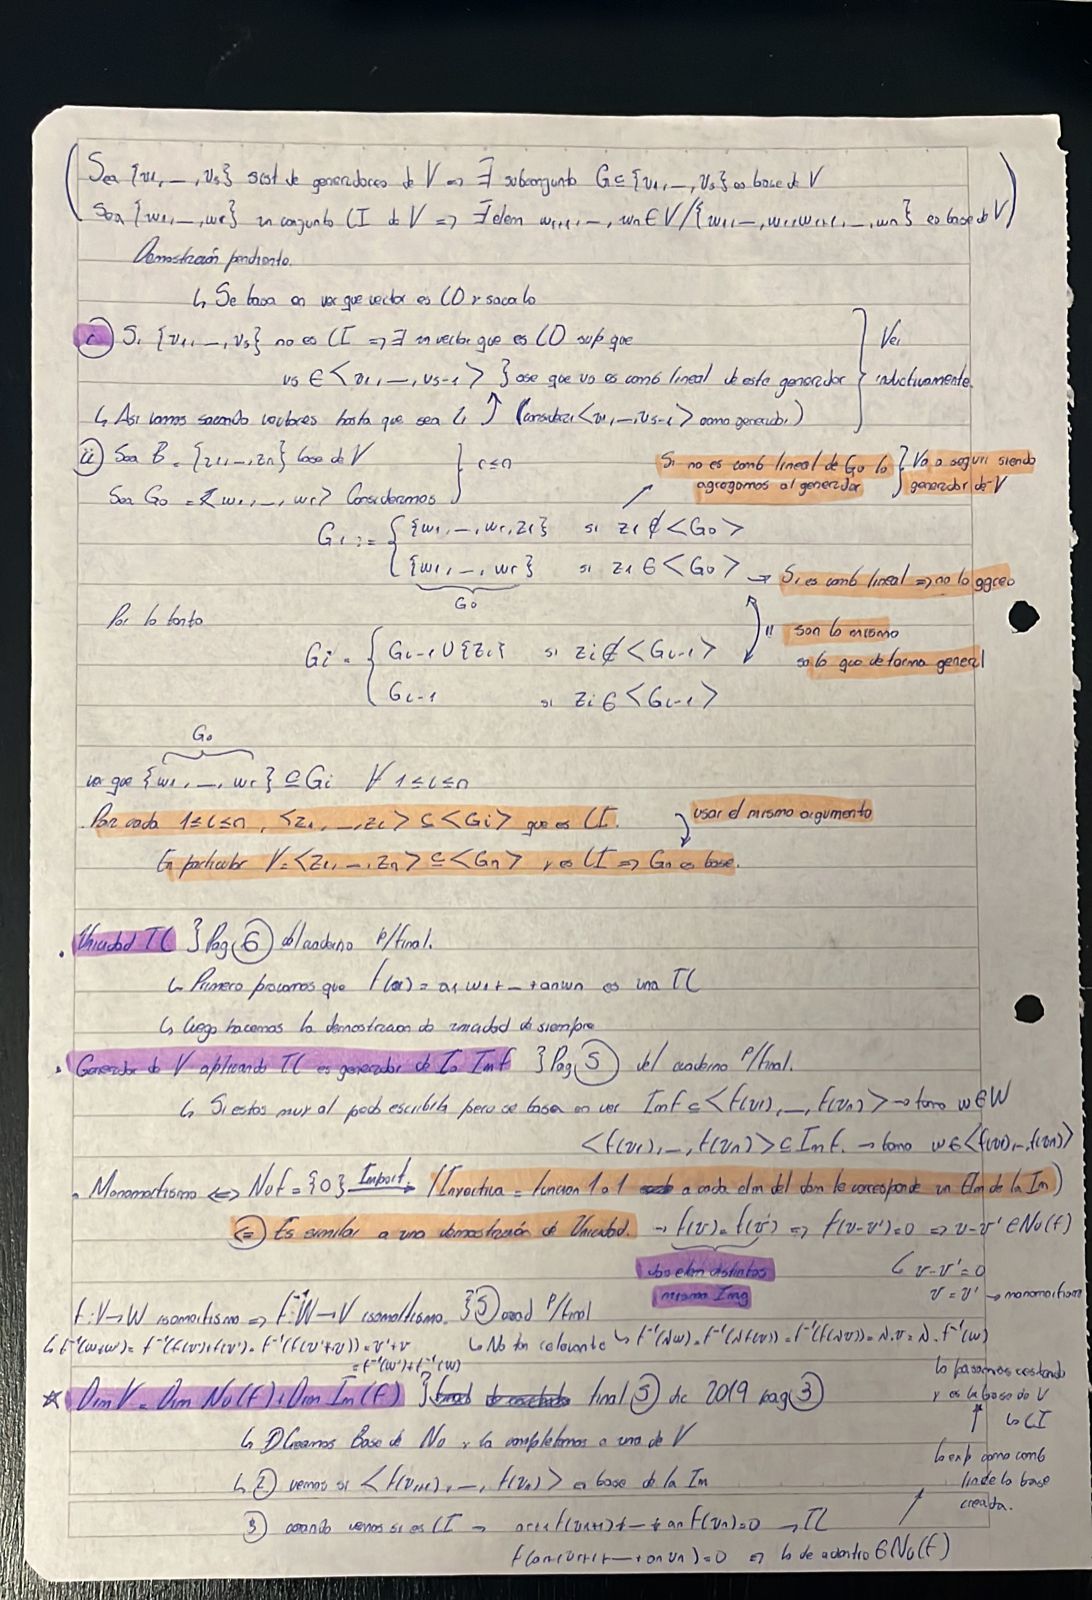 Sea {v1, _, vs} sist de generadores de V => ∃ subconjunto G⊆{v1, _, vs} es base de V
Sea {w1, _, wr} un conjunto LI de V => ∃ elem wr+1, _, wn ∈ V / {w1, _, wr, wr+1, _, wn} es base de V
Demostración pendiente.
↳ Se basa en ver que vector es LD y sacalo
i) Si {v1, _, vs} no es LI => ∃ un vector que es LD sup que
vs ∈ <v1, _, vs-1> } ose que vs es comb lineal de este generador
Ver inductivamente.
↳ Asi vamos sacando vectores hasta que sea LI ↑ (consideri <v1, _, vs-1> como generador)
ii) Sea B = {z1, _, zn} base de V
Sea G0 = {w1, _, wr} Consideramos } r≤n
Si no es comb lineal de G0 lo agregamos al generador } Va a seguir siendo generador de V
G1 := { {w1, _, wr, z1} si z1 ∉ <G0>
{w1, _, wr} si z1 ∈ <G0> → Si es comb lineal => no lo agreo
G0
Por lo tanto
Gi = { Gi-1 ∪ {zi} si zi ∉ <Gi-1>
Gi-1 si zi ∈ <Gi-1>
" son lo mismo
so lo que de forma general
G0
ver que {w1, _, wr} ⊆ Gi ∀ 1≤i≤n
Por cada 1≤i≤n, <z1, _, zi> ⊆ <Gi> que es LI.
usar el mismo argumento
En particular V = <z1, _, zn> ⊆ <Gn> y es LI => Gn es base.
. Unicidad TL } Pag 6 del cuaderno p/final.
↳ Primero probamos que f(x) = a1w1 + _ + anwn es una TL
↳ Luego hacemos la demostracion de unicidad de siempre
. Generador de V aplicando TL es generador de la Imf } Pag 5 del cuaderno p/final.
↳ Si estos muy al pedo escribila pero se basa en ver Imf ⊆ <f(v1), _, f(vn)> → tomo w∈W
<f(v1), _, f(vn)> ⊆ Imf. → tomo w∈<f(v1), _, f(vn)>
. Monomorfismo <=> Nuf = {0} Import. → (Inyectiva = funcion 1 a 1 a cada elm del dom le corresponde un Elm de la Im)
<=) Es similar a una demostración de Unicidad. → f(v) = f(v') => f(v-v') = 0 => v-v' ∈ Nu(f)
dos elem distintos
misma Img
↳ v-v' = 0
v = v' → monomorfismo
f: V→W isomorfismo => f⁻¹: W→V isomorfismo. } 5 cuad p/final
↳ f⁻¹(w+w') = f⁻¹(f(v)+f(v')) = f⁻¹(f(v'+v)) = v'+v
= f⁻¹(w')+f⁻¹(w)
↳ No tan relevante ↳ f⁻¹(λw) = f⁻¹(λf(v)) = f⁻¹(f(λv)) = λ.v = λ.f⁻¹(w)
☆ Dim V = Dim Nu(f) + Dim Im(f) } final 5 dic 2019 pag 3
↳ 1) Creamos Base de Nu y la completamos a una de V
↳ 2) vemos si <f(vr+1), _, f(vn)> es base de la Im
3) cuando vemos si es LI → ar+1f(vr+1) + _ + an f(vn) = 0 → TL
f(ar+1vr+1 + _ + anvn) = 0 => lo de adentro ∈ Nu(f)
lo exp como comb
lin de la base
creada.
lo pasamos restando
y es la base de V
↳ LI